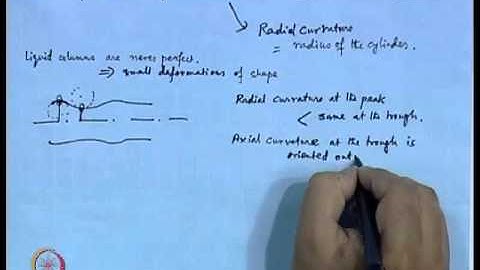 Radial Curvature
= radius of the cylinder.
Liquid columns are never perfect.
⇒ small deformations of shape
Radial curvature at the peak
< same at the trough.
Axial curvature at the trough is
oriented out